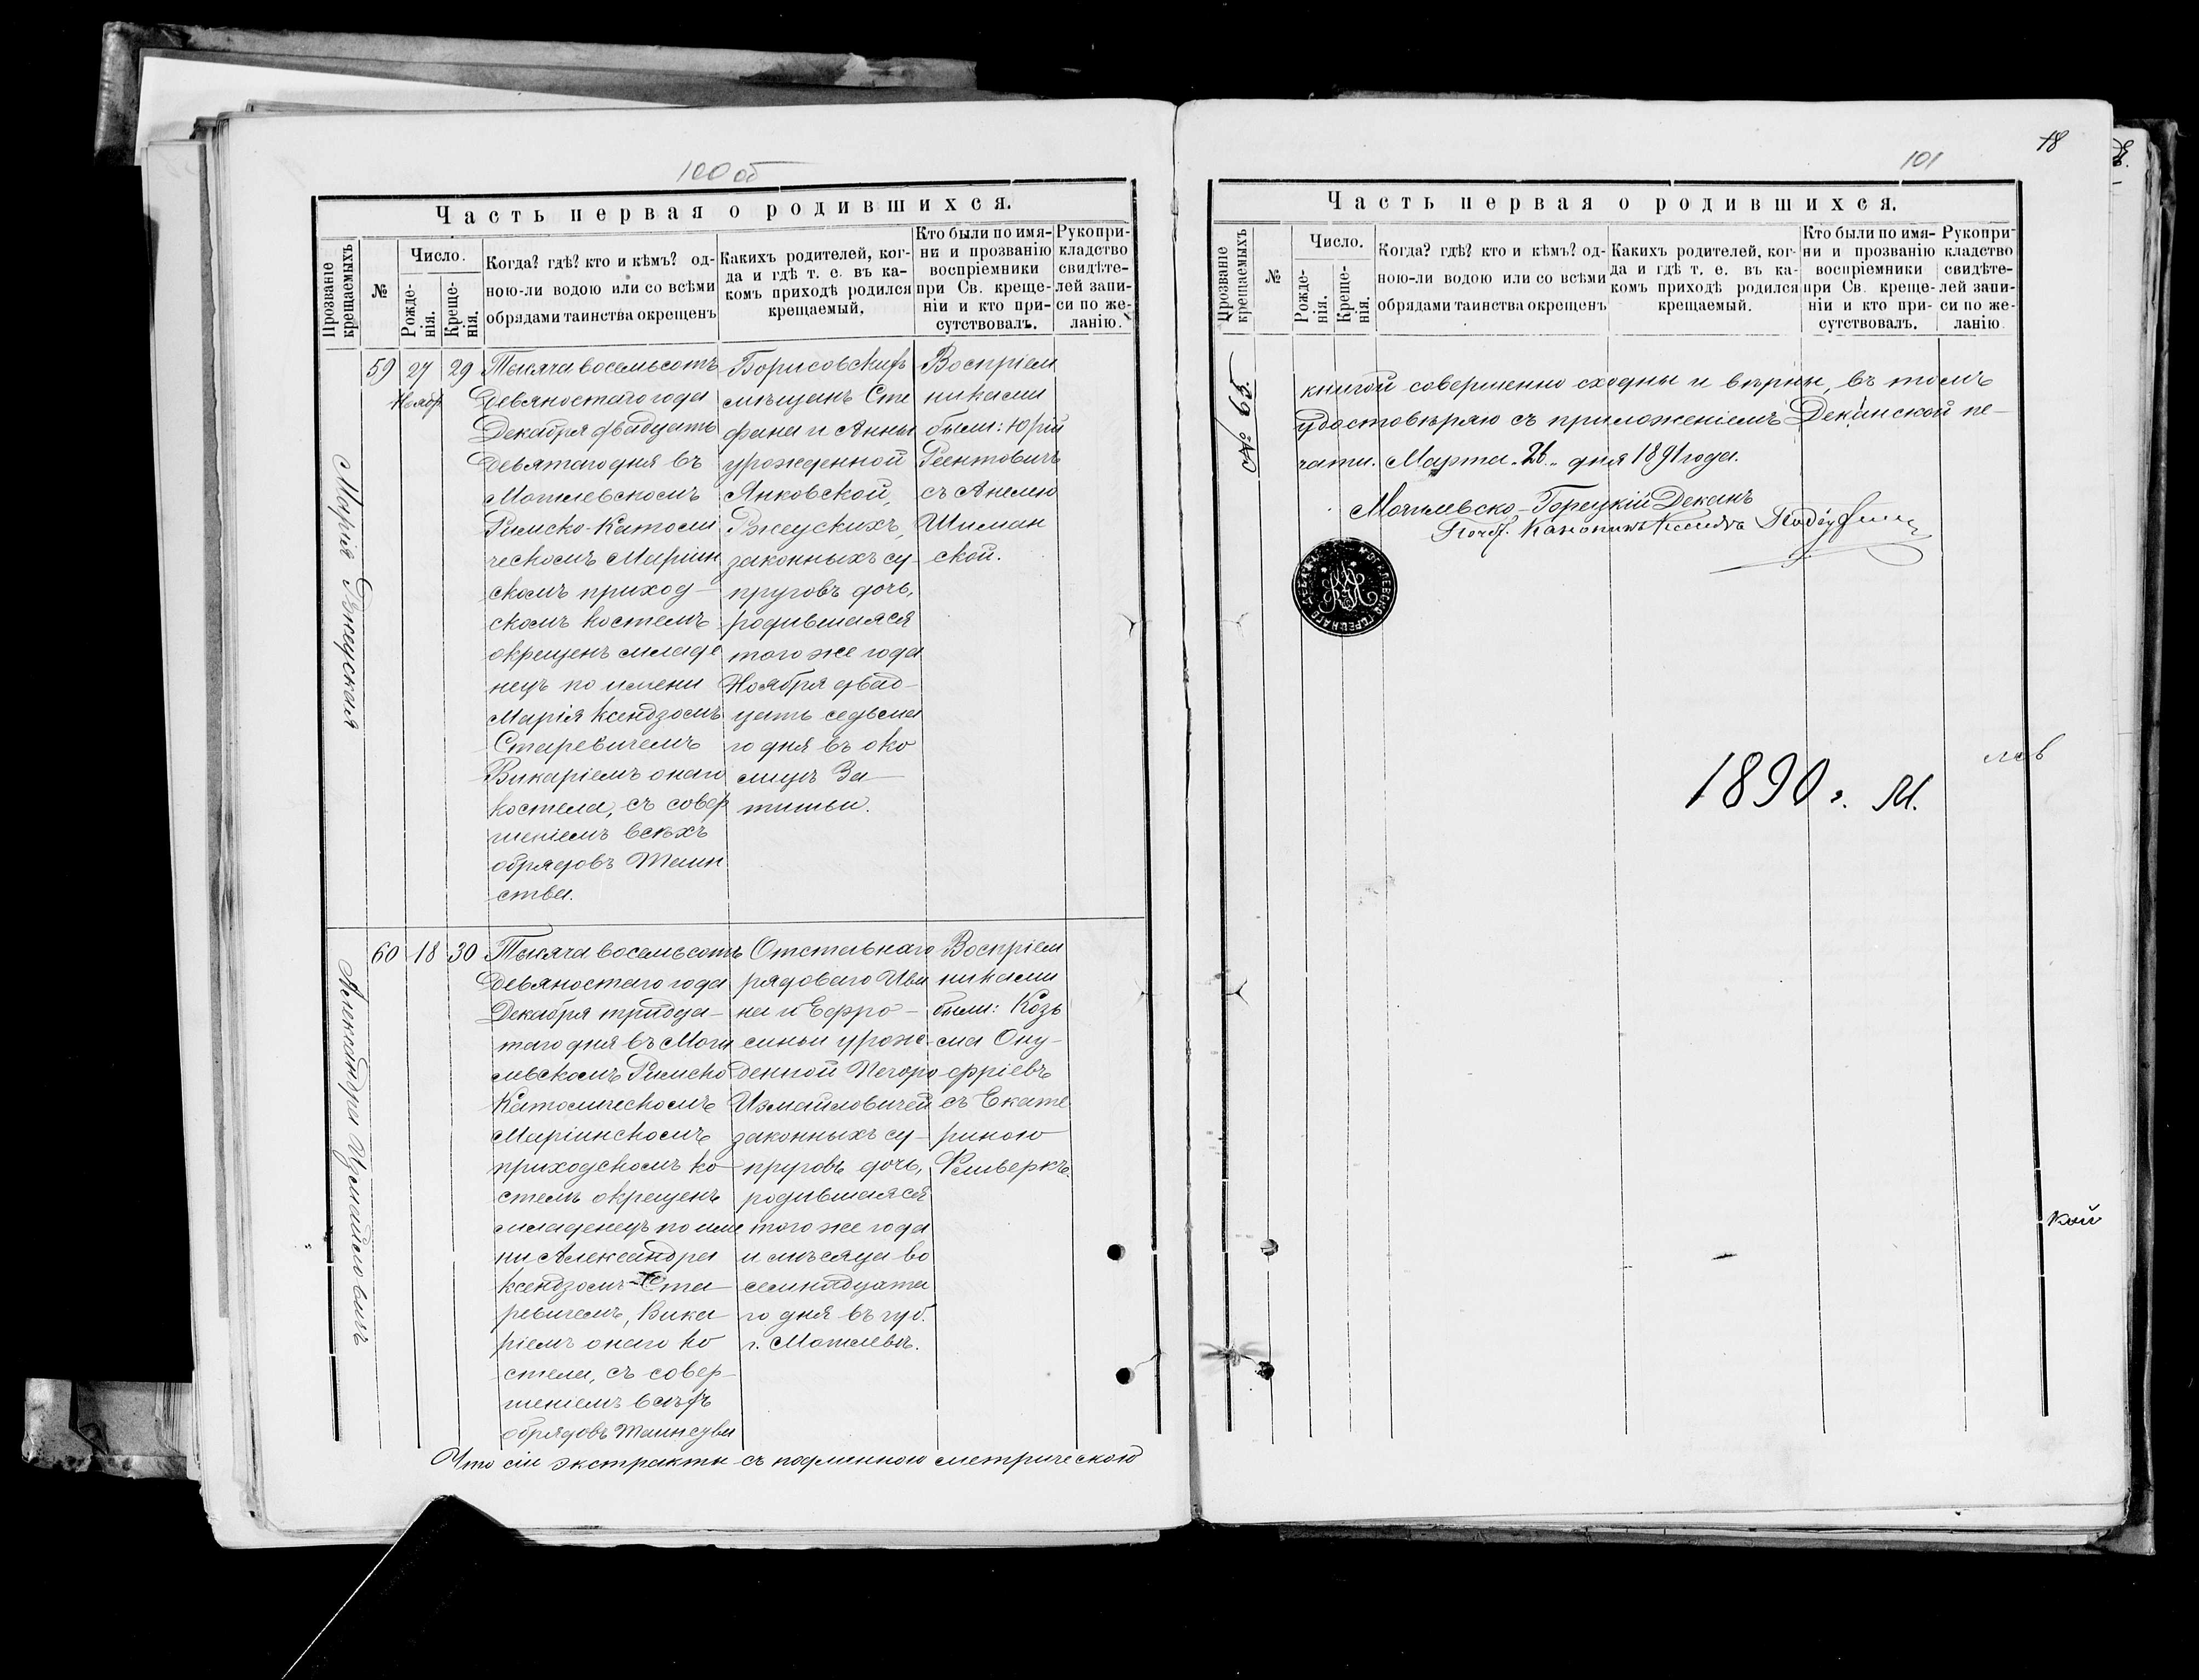 100 об
Часть первая о родившихся.
Прозваніе крещаемыхъ
№
Число.
Рожде-
нія.
Креще-
нія.
Когда? гдѣ? кто и кѣмъ? од-
ною-ли водою или со всѣми
обрядами таинства окрещенъ
Какихъ родителей, ког-
да и гдѣ т. е. въ ка-
комъ приходѣ родился
крещаемый.
Кто были по имя-
ни и прозванію
воспріемники
при Св. креще-
ніи и кто при-
сутствовалъ.
Рукопри-
кладство
свидѣте-
лей запи-
си по же-
ланію.
Марія Ржеуская
59
27
Ноябр
29
Тысяча восемьсотъ
Девяностаго года
Декабря двадцать
Девятаго дня въ
Могилевскомъ
Римско-Католи
ческомъ Маріин
скомъ приход-
скомъ костелѣ
окрещенъ младе
нецъ по имени
Марія ксендзомъ
Старевичемъ
Викаріемъ онаго
костела, съ совер
шеніемъ всѣхъ
обрядовъ Таин
ства.
Борисовскихъ
мѣщанъ Сте
фана и Анны
урожденной
Янковской,
Ржеускихъ,
законныхъ су-
пруговъ дочь,
родившаяся
того же года
Ноября двад-
цать седьма
го дня въ око
лицѣ За-
тишьи.
Воспріем
никами
были: Юрій
Реентовичъ
съ Анелею
Шиман
ской.
Александра Измайловичъ
60
18
30
Тысяча восемьсотъ
Девяностаго года
Декабря тридца-
таго дня въ Моги
левскомъ Римско
Католическомъ
Маріинскомъ
приходскомъ ко-
стелѣ окрещенъ
младенецъ по име
ни Александра
ксендзомъ Ста-
ревичемъ, Вика-
ріемъ онаго ко
стела, съ совер-
шеніемъ всѣхъ
обрядовъ Таинства
Отставнаго
рядоваго Ива
на и Ефро-
синьи урож-
денной
Измайловичей
законныхъ су-
пруговъ дочь,
родившаяся
того же года
и мѣсяца во
семнадцата
го дня въ губ.
г. Могилевѣ.
Воспріем
никами
были: Козь
ма Ону-
фріевъ
съ Екате
риною
Фельверкъ.
Что сіи экстракты съ подлинною метрическою
18
101
Часть первая о родившихся.
Прозваніе крещаемыхъ
№
Число.
Рожде-
нія.
Креще-
нія.
Когда? гдѣ? кто и кѣмъ? од-
ною-ли водою или со всѣми
обрядами таинства окрещенъ
Какихъ родителей, ког-
да и гдѣ т. е. въ ка-
комъ приходѣ родился
крещаемый.
Кто были по имя-
ни и прозванію
воспріемники
при Св. креще-
ніи и кто при-
сутствовалъ.
Рукопри-
кладство
свидѣте-
лей запи-
си по же-
ланію.
№ 65.
книгой совершенно сходны и вѣрны, въ томъ
удостовѣряю съ приложеніемъ Деканской пе-
чати. Марта „26„ дня 1891 года.
Могилевско-Горецкій Деканъ
1890 г. М.
лов
кой